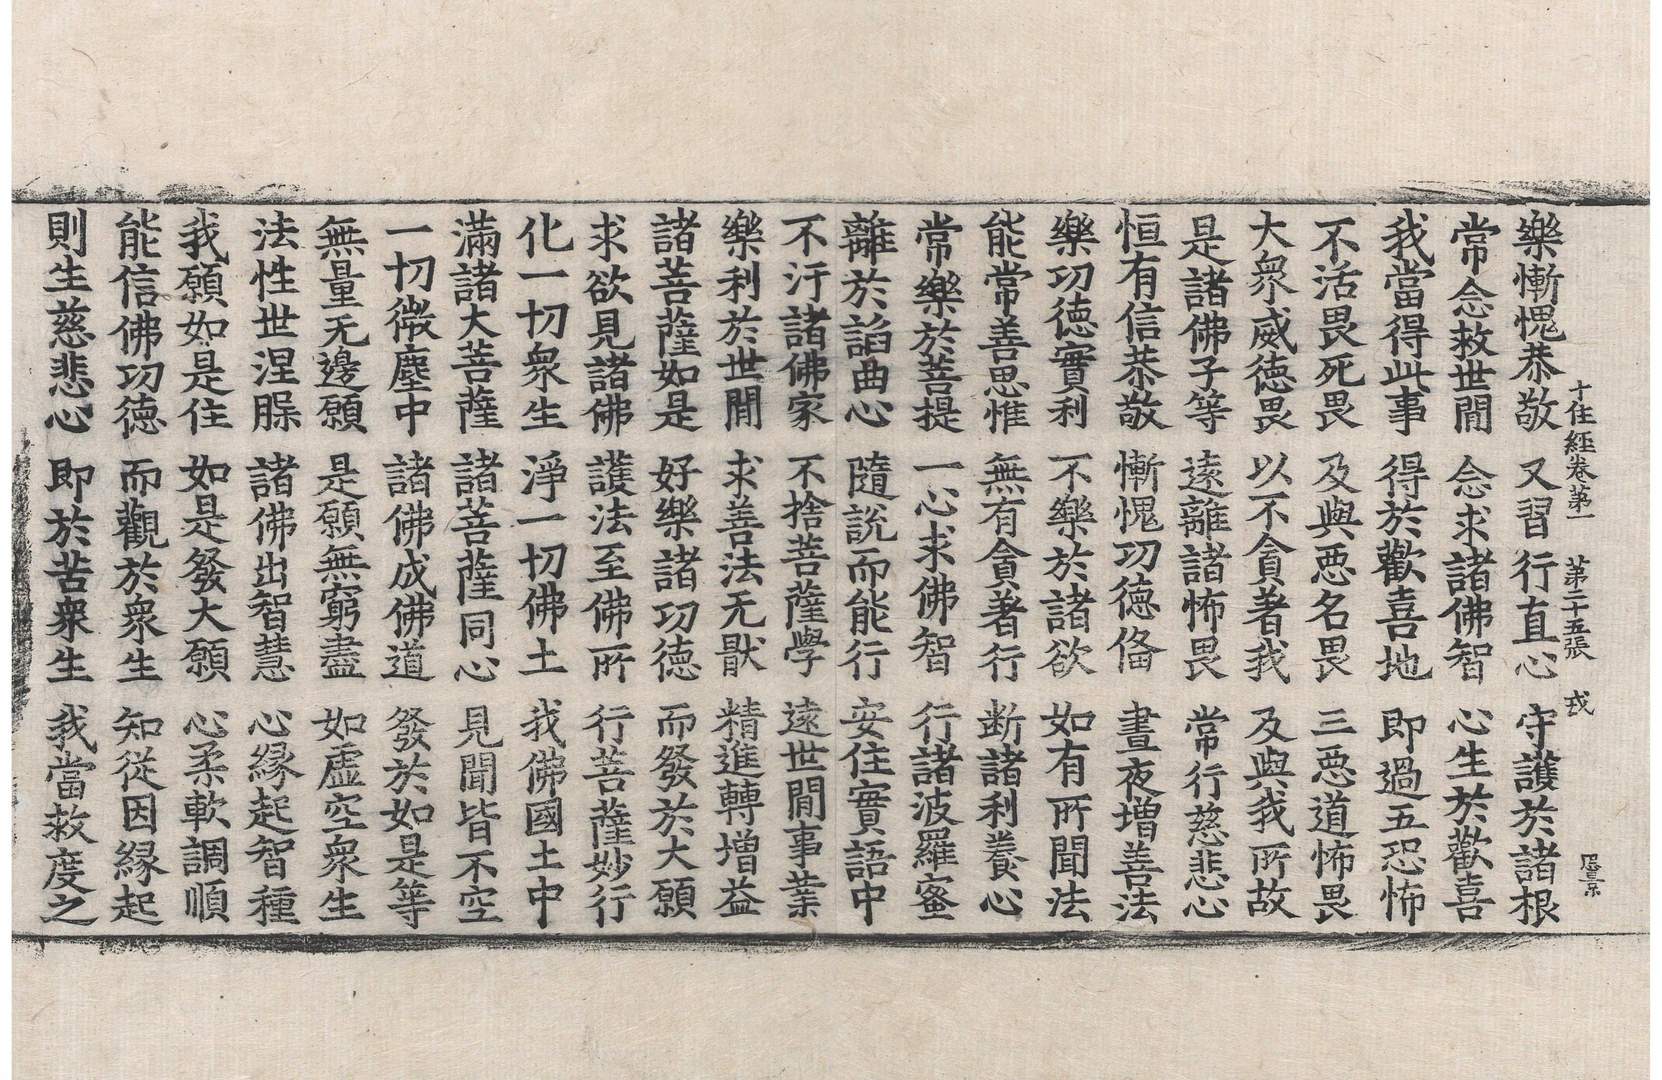 十住經卷第一 第二十五張 㦯
樂慚愧恭敬 又習行直心 守護於諸根
常念救世間 念求諸佛智 心生於歡喜
我當得此事 得於歡喜地 即過五恐怖
不活畏死畏 及與惡名畏 三惡道怖畏
大衆威德畏 以不貪著我 及與我所故
是諸佛子等 遠離諸怖畏 常行慈悲心
恒有信恭敬 慚愧功德俻 晝夜增善法
樂功德實利 不樂於諸欲 如有所聞法
能常善思惟 無有貪著行 断諸利養心
常樂於菩提 一心求佛智 行諸波羅蜜
離於諂曲心 隨說而能行 安住實語中
不汙諸佛家 不捨菩薩學 遠世間事業
樂利於世間 求善法无猒 精進轉增益
諸菩薩如是 好樂諸功德 而發於大願
求欲見諸佛 護法至佛所 行菩薩妙行
化一切衆生 淨一切佛土 我佛國土中
滿諸大菩薩 諸菩薩同心 見聞皆不空
一切微塵中 諸佛成佛道 發於如是等
無量无邊願 是願無窮盡 如虛空衆生
法性世涅脲 諸佛出智慧 心緣起智種
我願如是住 如是發大願 心柔軟調順
能信佛功德 而觀於衆生 知從因緣起
則生慈悲心 即於苦衆生 我當救度之